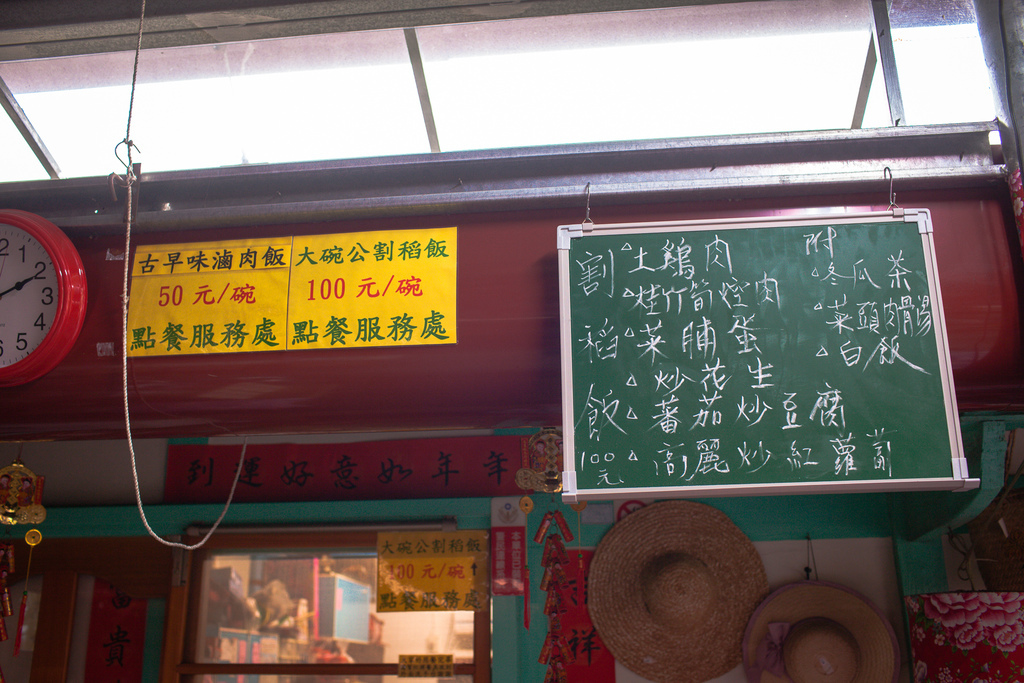 2
2
3
4
5
6
古早味滷肉飯
50 元/碗
點餐服務處
大碗公割稻飯
100 元/碗
點餐服務處
割稻飯
100元
土鷄肉
桂竹筍焢肉
菜脯蛋
炒花生
蕃茄炒豆腐
高麗炒紅蘿蔔
附
冬瓜茶
菜頭肉骨湯
白飯
年年如意好運到
大碗公割稻飯
100 元/碗
點餐服務處
富貴
祥